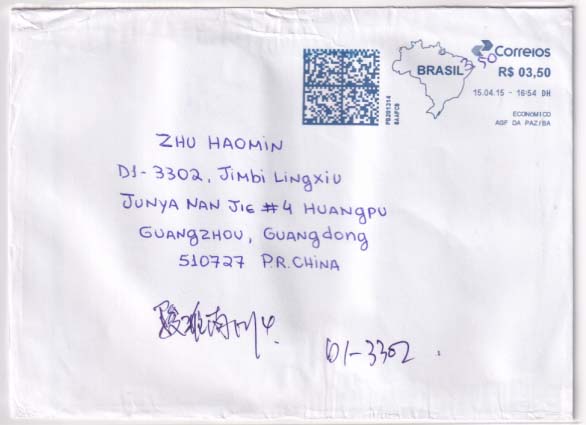 Correios
BRASIL
3,50
R$ 03,50
15.04.15 - 16:54 DH
PB201314
ECONOMICO
AGF DA PAZ/BA
ZHU HAOMIN
D1-3302, JIMBI LINGXIU
JUNYA NAN JIE #4 HUANGPU
GUANGZHOU, GUANGDONG
510727 P.R.CHINA
骏雅南 4.
D1-3302